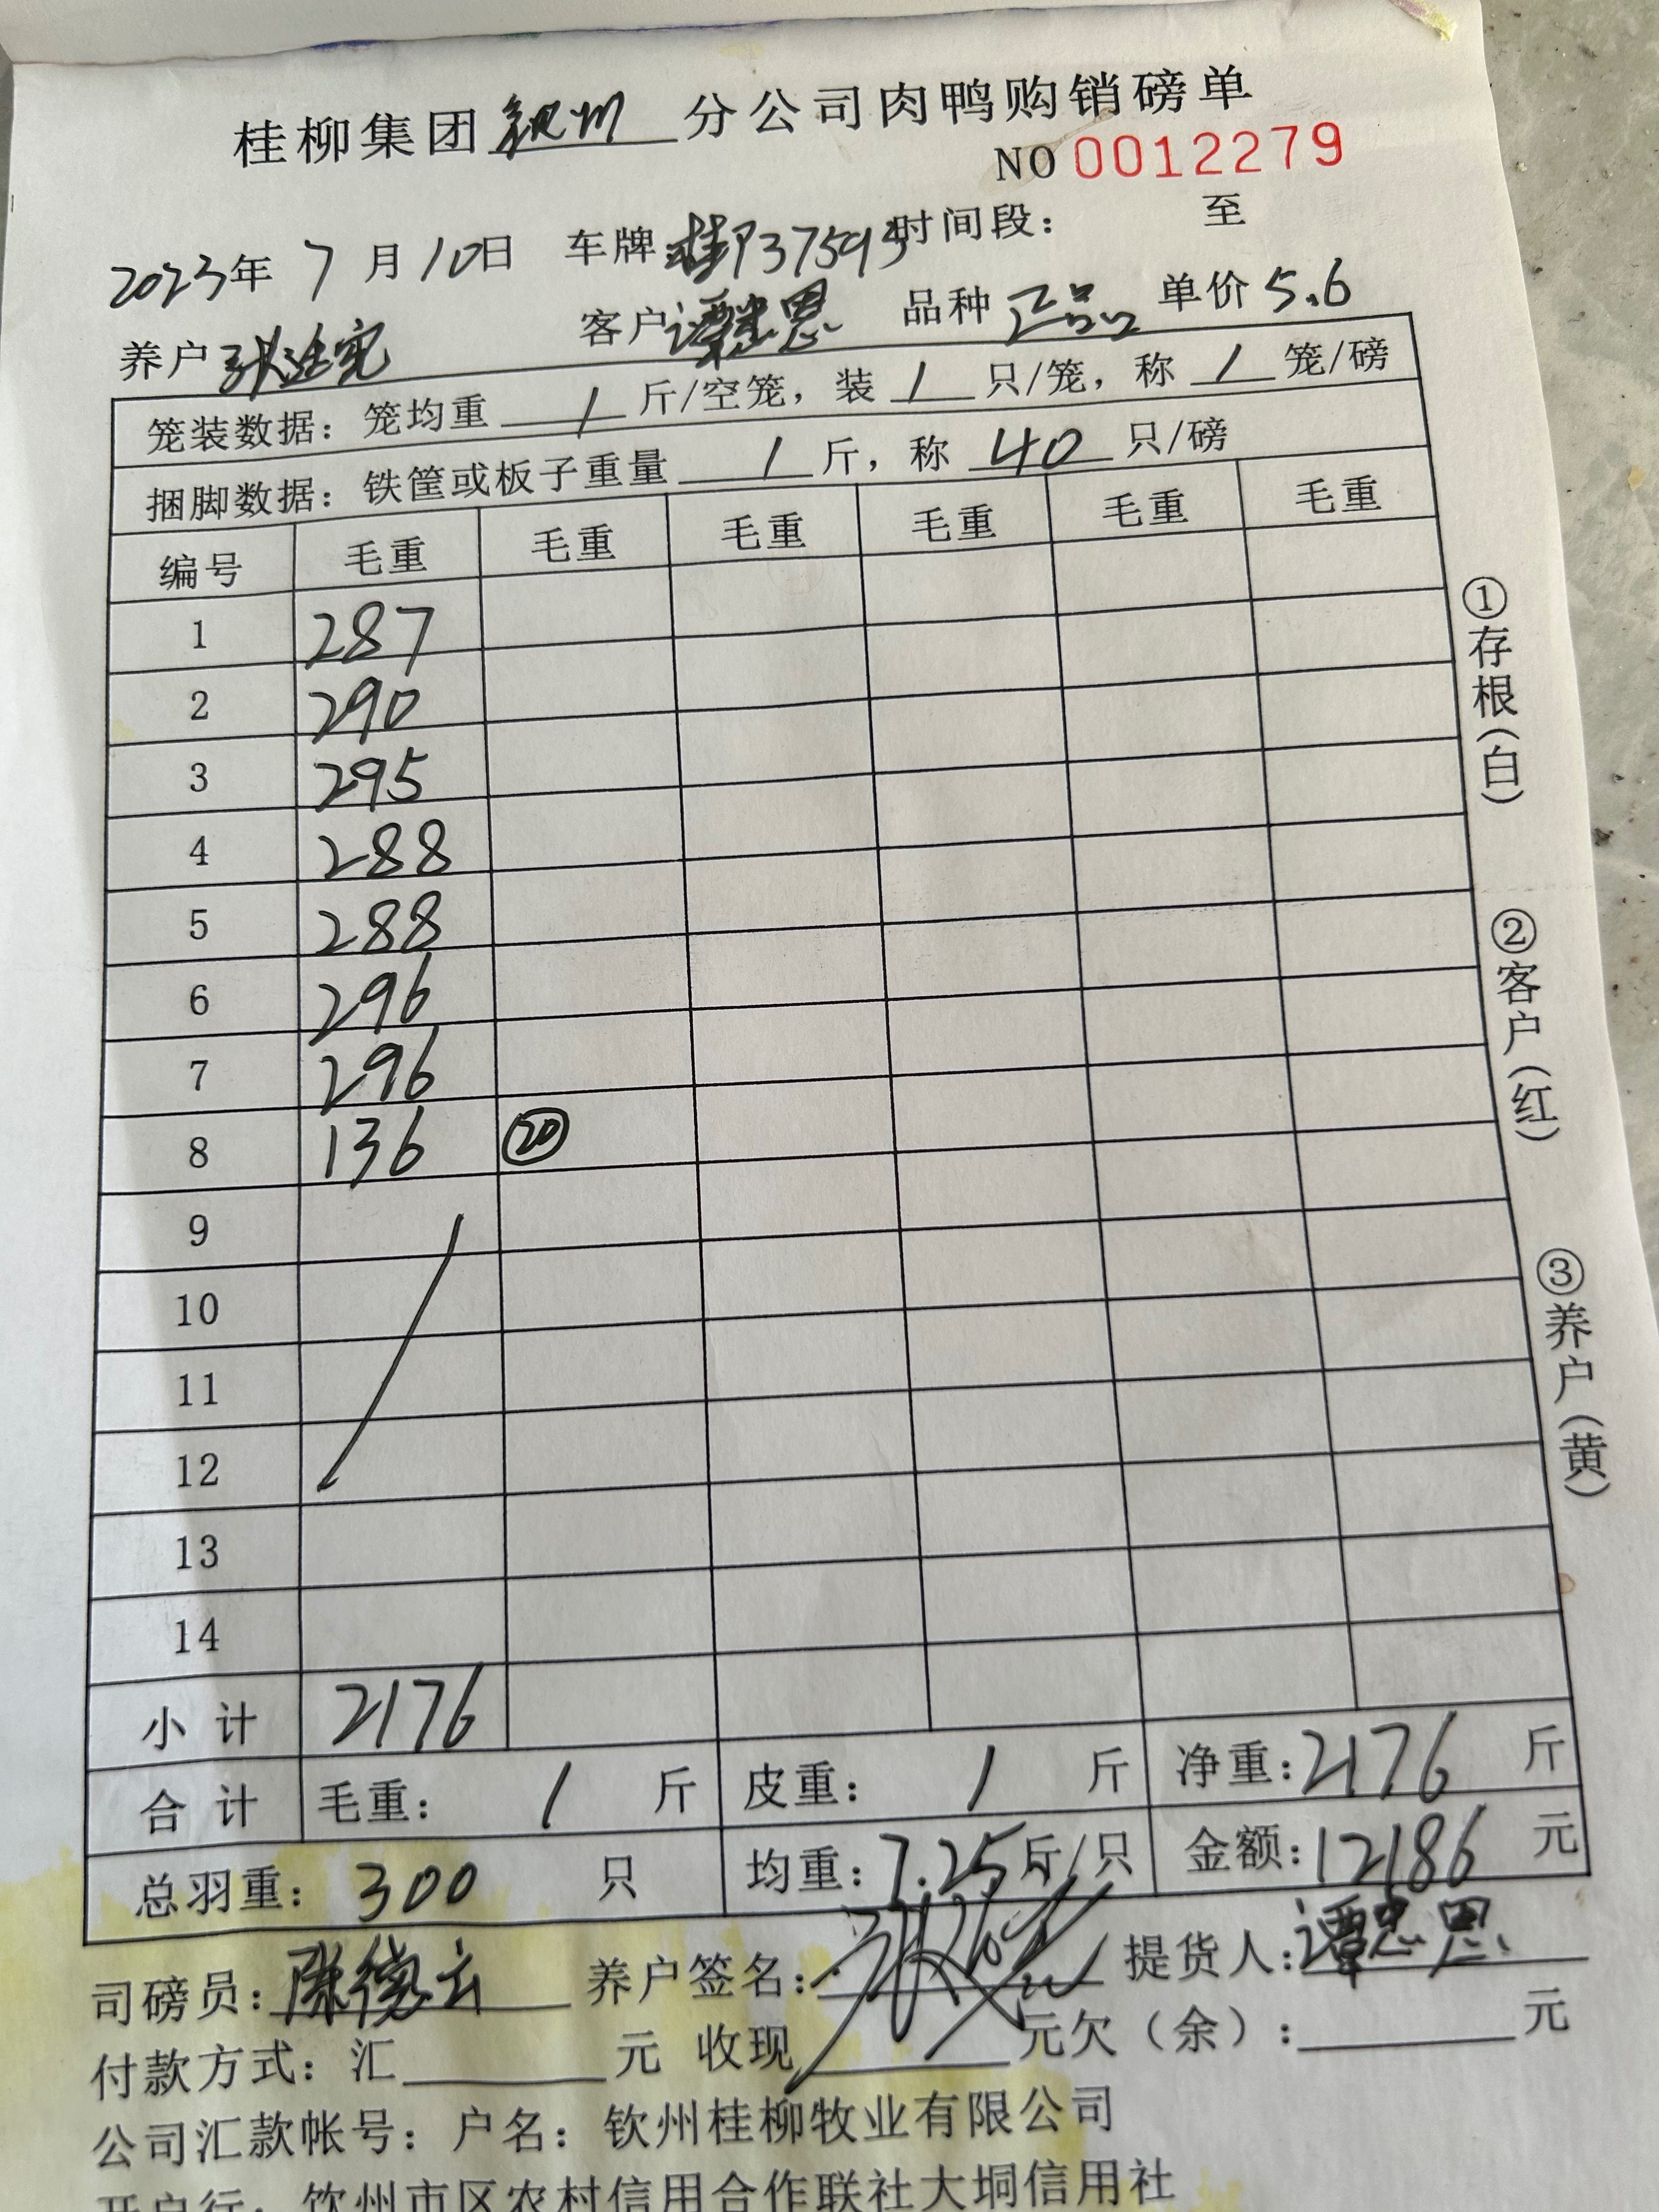 桂柳集团钦州分公司肉鸭购销磅单
NO 0012279
2023年 7月10日 车牌桂P37593时间段： 至
养户 客户谭忠恩 品种正品 单价5.6
笼装数据：笼均重 / 斤/空笼，装 / 只/笼，称 / 笼/磅
捆脚数据：铁筐或板子重量 / 斤，称 40 只/磅
编号 毛重 毛重 毛重 毛重 毛重 毛重
1 287
2 290
3 295
4 288
5 288
6 296
7 296
8 136 ⑳
9
10
11
12
13
14
小计 2176
合计 毛重： / 斤 皮重： / 斤 净重：2176 斤
总羽重：300 只 均重：7.25斤/只 金额：12186 元
司磅员：陈德云 养户签名： 提货人：谭忠恩
付款方式：汇 元 收现 元欠（余）： 元
公司汇款帐号：户名：钦州桂柳牧业有限公司
开户行：钦州市区农村信用合作联社大垌信用社
①存根（白）
②客户（红）
③养户（黄）